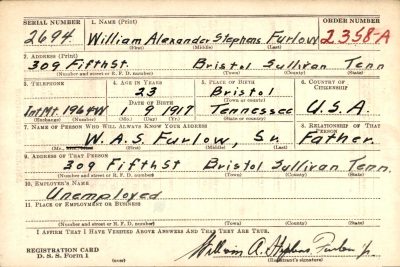 SERIAL NUMBER 1. NAME (Print) ORDER NUMBER
2694 William Alexander Stephens Furlow 2358-A
(First) (Middle) (Last)
2. ADDRESS (Print)
309 Fifth St. Bristol Sullivan Tenn
(Number and street or R. F. D. number) (Town) (County) (State)
3. TELEPHONE 4. AGE IN YEARS 5. PLACE OF BIRTH 6. COUNTRY OF CITIZENSHIP
23 Bristol
DATE OF BIRTH (Town or county)
1964W 1 1917 Tennessee U.S.A.
(Exchange) (Number) (Mo.) (Day) (Yr.) (State or country)
7. NAME OF PERSON WHO WILL ALWAYS KNOW YOUR ADDRESS 8. RELATIONSHIP OF THAT PERSON
W. A. S. Furlow, Sr. Father
(First) (Middle) (Last)
9. ADDRESS OF THAT PERSON
309 Fifth St Bristol Sullivan Tenn.
(Number and street or R. F. D. number) (Town) (County) (State)
10. EMPLOYER'S NAME
Unemployed
11. PLACE OF EMPLOYMENT OR BUSINESS
(Number and street or R. F. D. number) (Town) (County) (State)
I AFFIRM THAT I HAVE VERIFIED ABOVE ANSWERS AND THAT THEY ARE TRUE.
REGISTRATION CARD
D. S. S. Form 1
William A. Stephens Furlow Jr.
(Registrant's signature)